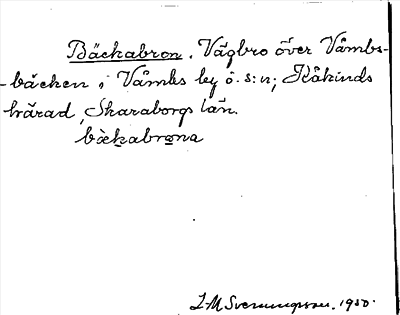 Bäckabron. Vägbro över Våmbs-
-bäcken, i Våmbs by o. s:n; Kåkinds
härad, Skaraborgs län.
bäkabrona
1950.